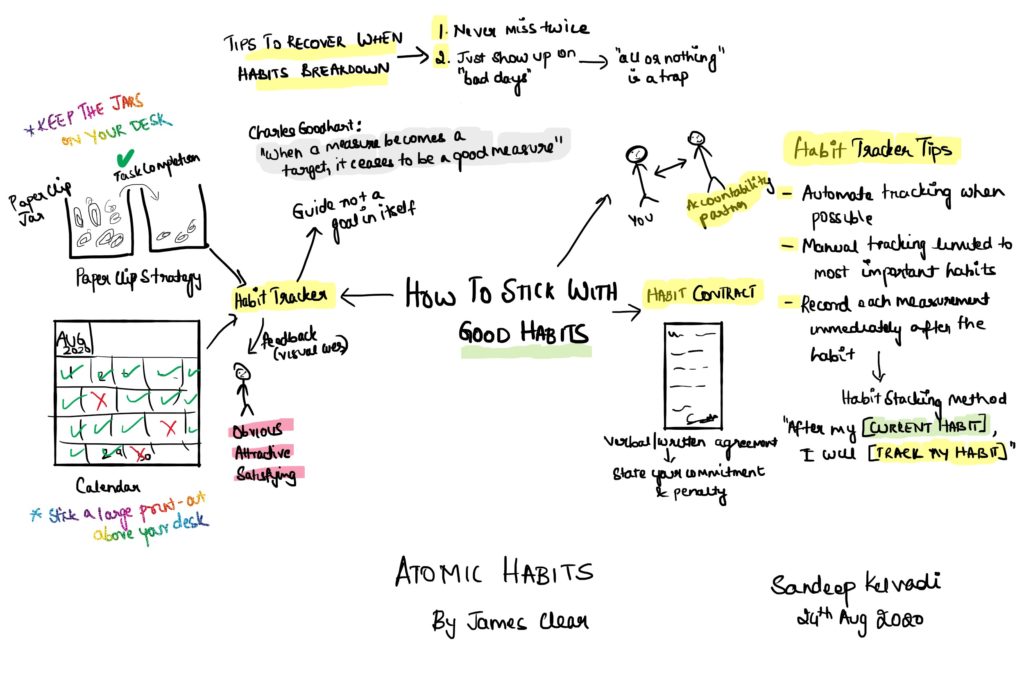 TIPS TO RECOVER WHEN
HABITS BREAKDOWN
1. NEVER MISS TWICE
2. Just show up on
"bad days"
"all or nothing"
is a trap
*KEEP THE JARS
ON YOUR DESK
Task Completion
Paper Clip
Jar
Paper Clip Strategy
Charles Goodhart:
"When a measure becomes a
target, it ceases to be a good measure"
Guide not a
goal in itself
Habit Tracker
Feedback
(visual cues)
Obvious
Attractive
Satisfying
AUG
2020
1 2
29 30
Calendar
* Stick a large print-out
above your desk
HOW TO STICK WITH
GOOD HABITS
YOU
Accountability
partner
HABIT CONTRACT
Verbal/written agreement
State your commitment
& penalty
Habit Tracker Tips
- Automate tracking when
possible
- Manual tracking limited to
most important habits
- Record each measurement
immediately after the
habit
Habit Stacking method
"After my [CURRENT HABIT],
I will [TRACK MY HABIT]"
ATOMIC HABITS
By James Clear
Sandeep Kelvadi
24th Aug 2020